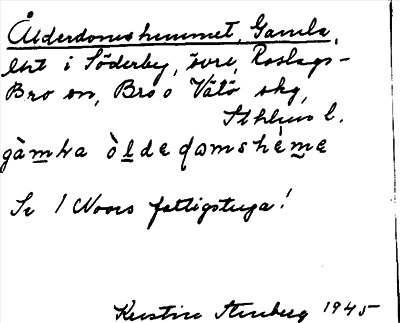 Ålderdomshemmet, Gamla,
lht i Söderby, övre, Roslags-
Bro sn, Bro o Vätö skg,
Sthlms l.
gàmƚa òldedomshème
Se 1 Noors fattigstuga!
Kerstin Stenberg 1945